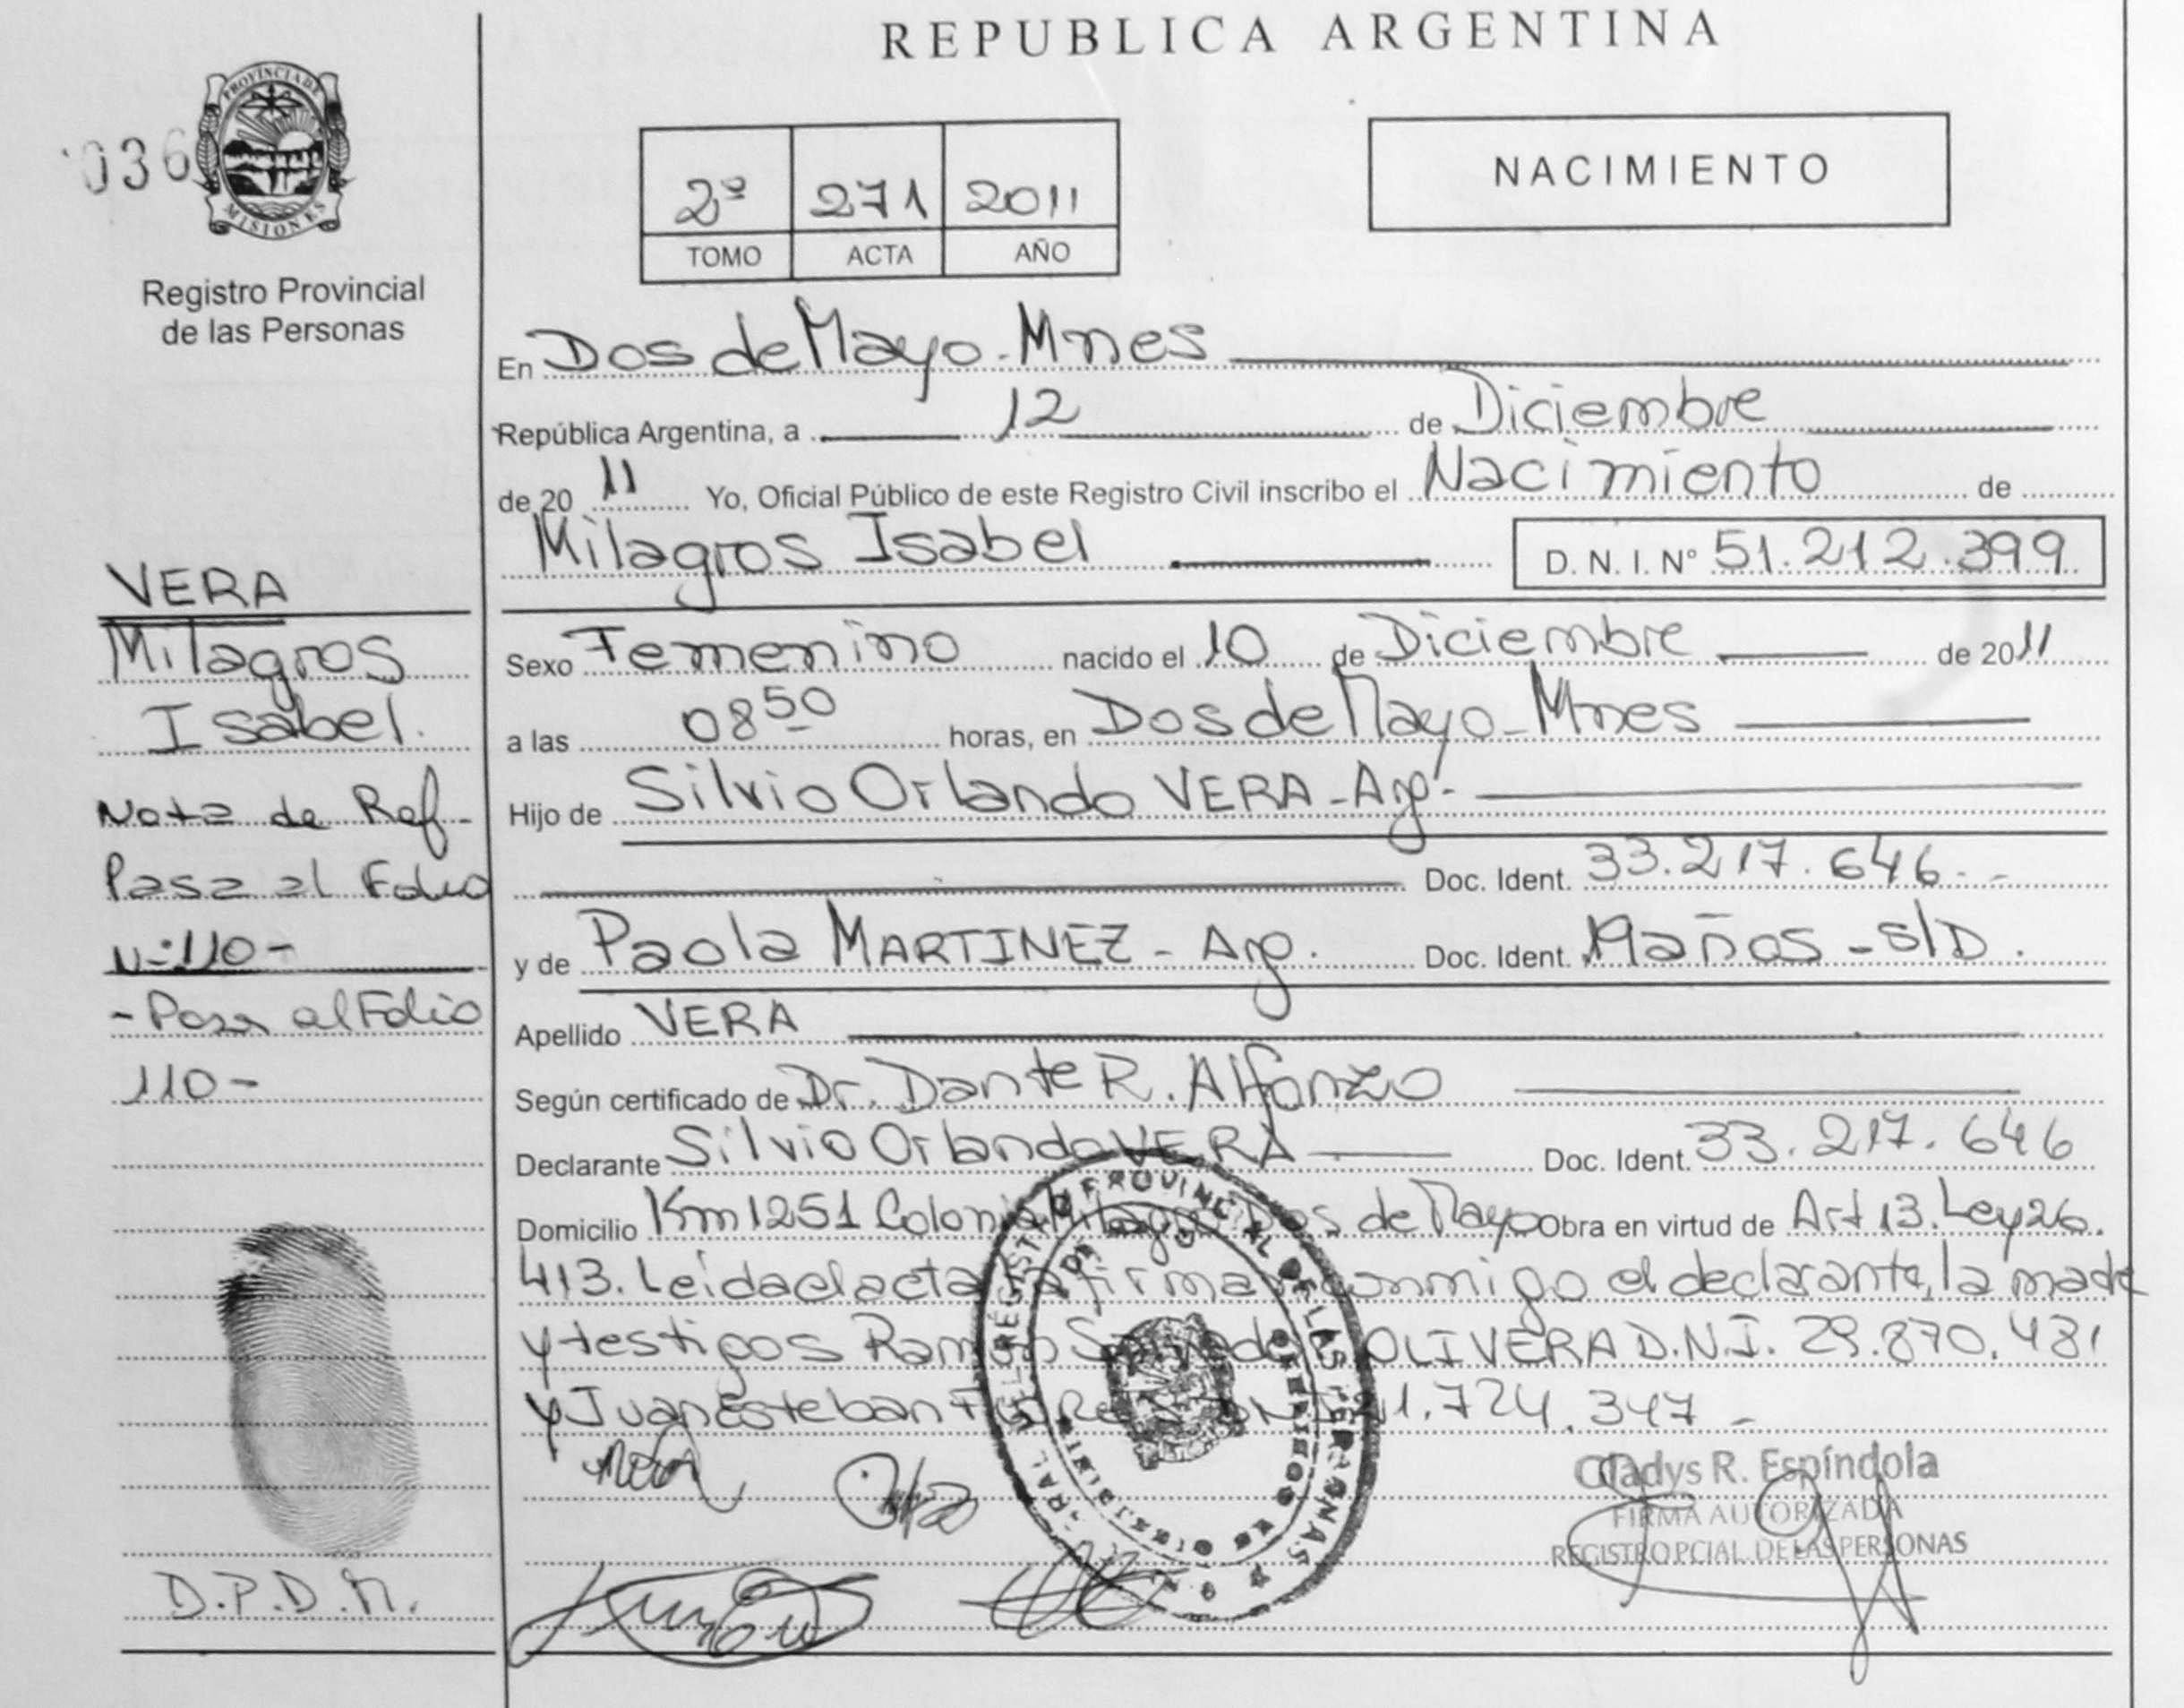 REPUBLICA ARGENTINA
036
PROVINCIA DE
MISIONES
Registro Provincial
de las Personas
2º 271 2011
TOMO ACTA AÑO
NACIMIENTO
En Dos de Mayo - Mnes
República Argentina, a 12 de Diciembre
de 20 11 Yo, Oficial Público de este Registro Civil inscribo el Nacimiento de
Milagros Isabel D. N. I. Nº 51.212.399
Sexo Femenino nacido el 10 de Diciembre de 2011
a las 08 50 horas, en Dos de Mayo - Mnes
Hijo de Silvio Orlando VERA - Arg.
Doc. Ident. 33.217.646 -
y de Paola MARTINEZ - Arg. Doc. Ident. años - s/D.
Apellido VERA
Según certificado de Dr. Dante R. Alfonzo
Declarante Silvio Orlando VERA Doc. Ident. 33.217.646
Domicilio Km 1251 Colonia Dos de Mayo Obra en virtud de Art 13. Ley 26.
413. Leida el acta firman conmigo el declarante, la madre
y testigos Ramón OLIVERA D.N.I. 29.870.481
y Juan Esteban 1.724.347 -
VERA
Milagros
Isabel.
Nota de Ref -
Pasa al Folio
Nº 110 -
- Pasa al Folio
110 -
D.P.D.M.
Gladys R. Espíndola
FIRMA AUTORIZADA
REGISTRO PCIAL. DE LAS PERSONAS